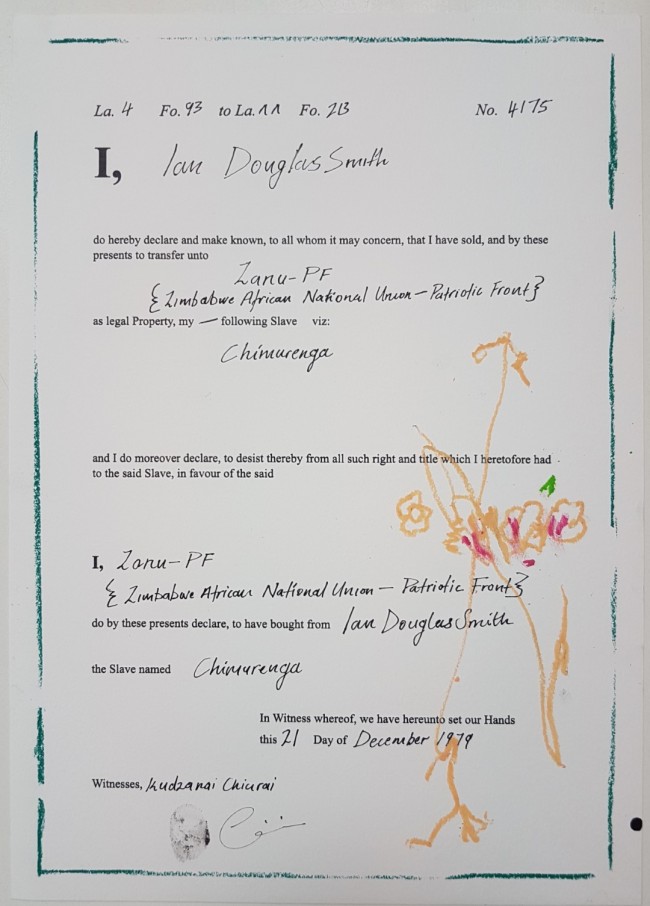 La. 4 Fo. 93 to La. 11 Fo. 213 No. 4175
I, Ian Douglas Smith
do hereby declare and make known, to all whom it may concern, that I have sold, and by these
presents to transfer unto
Zanu-PF
{Zimbabwe African National Union – Patriotic Front}
as legal Property, my — following Slave viz:
Chimurenga
and I do moreover declare, to desist thereby from all such right and title which I heretofore had
to the said Slave, in favour of the said
I, Zanu-PF
{Zimbabwe African National Union – Patriotic Front}
do by these presents declare, to have bought from Ian Douglas Smith
the Slave named Chimurenga
In Witness whereof, we have hereunto set our Hands
this 21 Day of December 1979
Witnesses, Kudzanai Chiurai